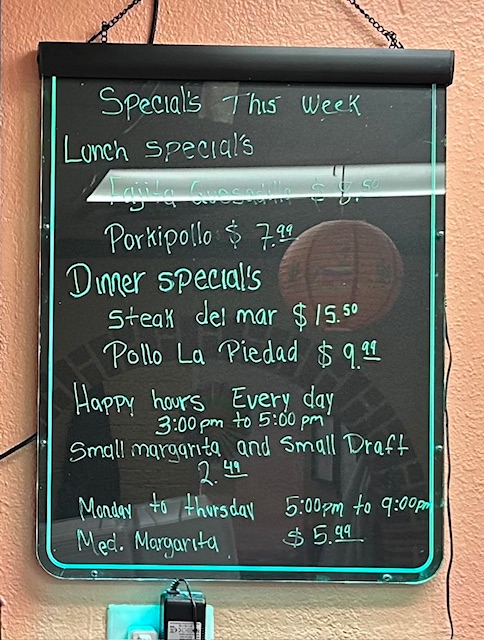 Special's This Week
Lunch special's
Fajita Quesadilla $ 8.50
Porkipollo $ 7.99
Dinner special's
Steak del mar $ 15.50
Pollo La Piedad $ 9.99
Happy hours Every day
3:00 pm to 5:00 pm
Small margarita and Small Draft
2.49
Monday to thursday 5:00pm to 9:00pm
Med. Margarita $ 5.99